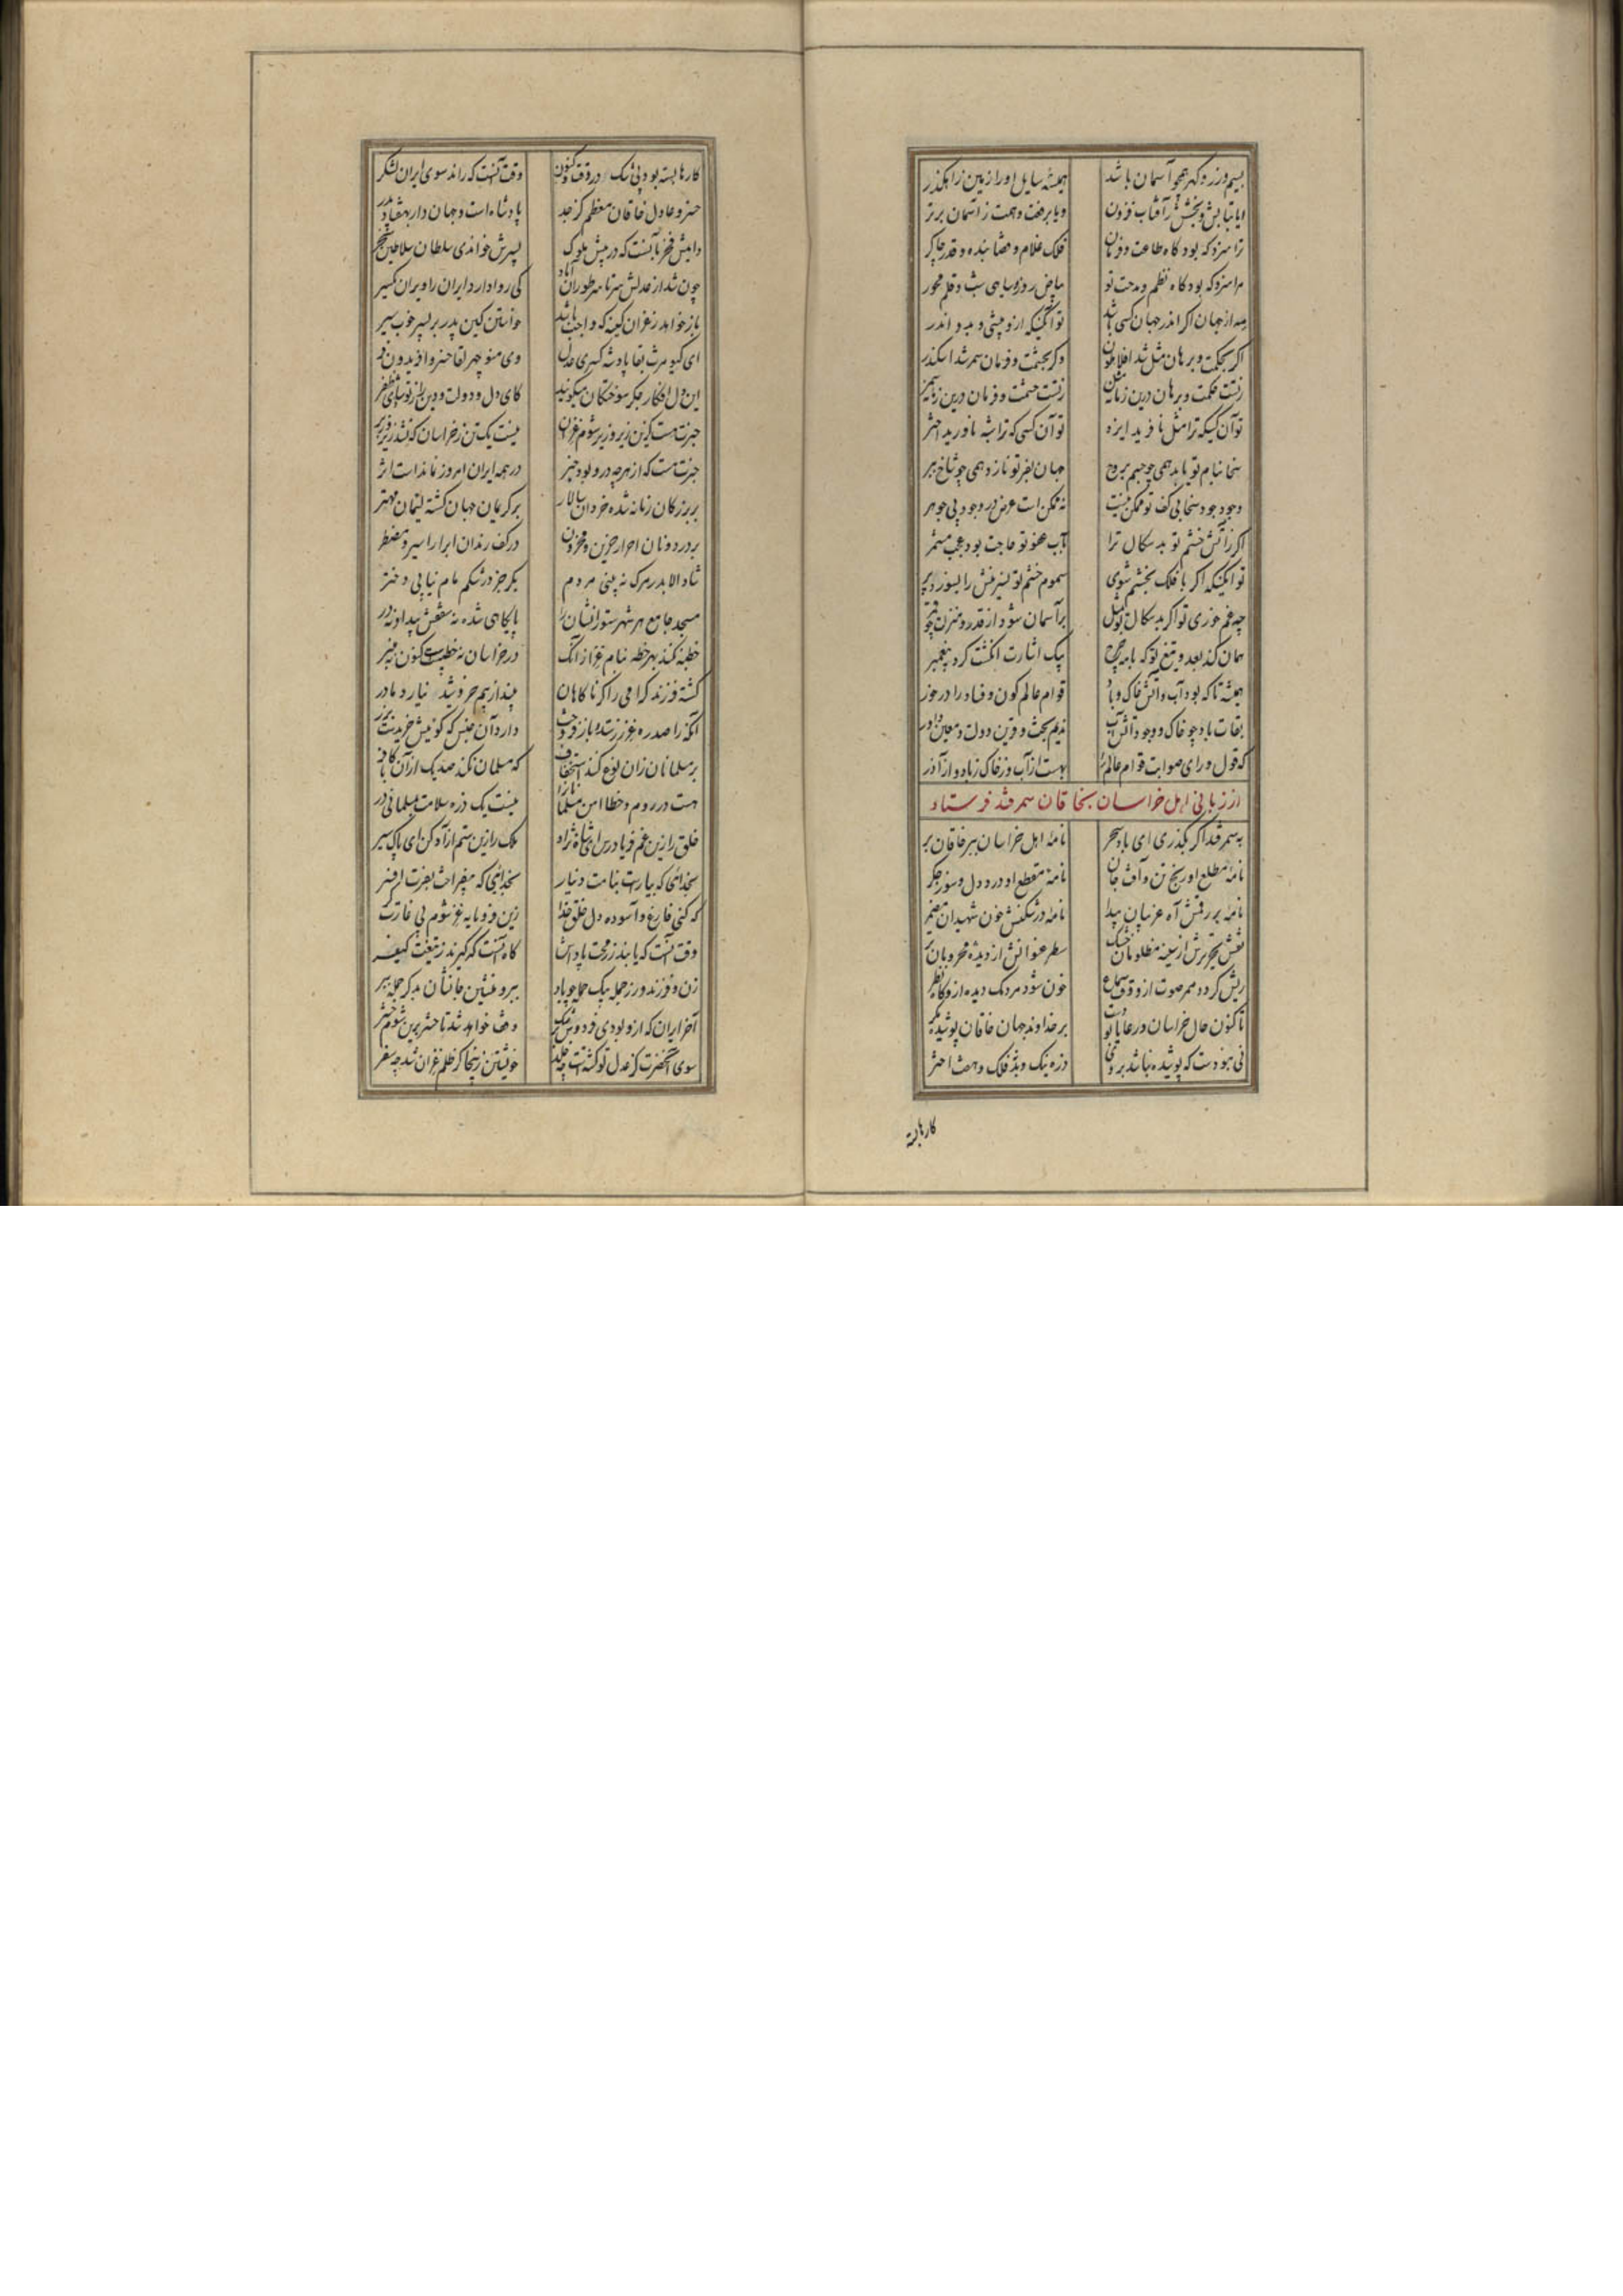 بسیم و زر و گهر همچو آسمان باشد همیشه سایل او را زمین زاهکذر
ایا بتابش و بخشش ز آفتاب فزون و یا برفعت و همت ز آسمان برتر
ترا سزد که بود گاه طاعت و فرمان فلک غلام و قضا بنده و قدر چاکر
مرا سزد که بود گاه نظم و مدحت تو بیاض روز و سیاهی شب و قلم محور
به از جهان اگر اندر جهان کسی باشد تو آنکسیکه ازو بیشی و بدو اندر
اگر بحکمت و برهان مثل شد افلاطون وگر بحشمت و فرمان سمر شد اسکندر
زتست حکمت و برهان درین زمانه مثل زتست حشمت و فرمان درین زمانه سمر
تو آن کسیکه ترا مثل نافرید ایزد تو آن کسی که ترا شبه ناورید اختر
سخا بنام تو یابد همی چو جسم بروح جهان بفر تو نازد همی چو شاخ ببر
وجود جود سخا بی کف تو ممکن نیست نه ممکن است عرض در وجود بی جوهر
اگر ز آتش خشم تو بدسکال ترا بآب عفو تو حاجت بود عجب مشمر
تو آنکسیکه اگر با فلک بخشم شوی سموم خشم تو
چه غم خوری تو اگر بدسکال تو بمثل بر آسمان شود از قدر و منزلت چو قمر
همان کند بعدو تیغ تو که با مه چرخ بیک اشارت انگشت کرد پیغمبر
همیشه تا که بود آب و آتش و خاک و باد قوام عالم کون و فساد را درخور
بقات باد چو خاک و چو باد و آتش و آب ندیم بخت و قرین دولت و معین داور
که قول و رای صوابت قوام عالم را بهست از آب و ز خاک و ز باد و از آذر
از زبانی اهل خراسان بخاقان سمرقند فرستاد
به سمرقند اگر بگذری ای باد سحر نامه اهل خراسان ببر خاقان بر
نامه مطلع او رنج تن و آفت جان نامه مقطع او درد دل و سوز جگر
نامه بر رقمش آه عزیزان پیدا نامه در شکنش خون شهیدان مضمر
نقش تحریرش از سینه مظلومان خشک سطر عنوانش از دیده محرومان تر
ریش گردد ممر صوت ازو وقت سماع خون شود مردمک دیده ازو گاه نظر
تا کنون حال خراسان و رعایا بودست بر خداوند جهان خاقان پوشیده مگر
نی نبودست که پوشیده نباشد بر وی ذره نیک و بد فلک و هفت اختر
کارها بسته
کارها بسته بود بی شک در وقت و کنون وقت آنست که راند سوی ایران لشکر
خسرو عادل خاقان معظم کز جد پادشاه است و جهان دار بهفتاد پدر
دایمش فخر بآنست که در پیش ملوک پسرش خواندی سلطان سلاطین سنجر
چون شد از عدلش سرتاسر توران آباد کی روا دارد ایران را ویران یکسر
باز خواهد ز غزان کینه که واجب باشد خواستن کین پدر بر پسر خوب سیر
ای کیومرث بقا پادشه کسری عدل وی منوچهر لقا خسرو افریدون فر
این دل افکار جگر سوختگان میگویند کای دل و دولت و دین را ز تو شادی و ظفر
خبرت هست کزین زیر و زبر شوم غزان نیست یک تن ز خراسان که نشد زیر و زبر
خبرت هست که از هرچه درو بود خبر در همه ایران امروز نماندست اثر
بر بزرگان زمانه شده خردان سالار بر کریمان جهان گشته لئیمان مهتر
بر در دونان احرار حزین و محزون در کف رندان ابرار اسیر و مضطر
شاد الا بدر مرگ نه بینی مردم بکر جز در شکم مام نیابی دختر
مسجد جامع هر شهر ستورانشان را پایگاهی شده نه سقفش پیدا و نه در
خطبه نکنند بهر خطه بنام غز از آنک در خراسان نه خطیبست کنون نه منبر
کشته فرزند گرامی را گر ناگاهان بیند از بیم خروشید نیارد مادر
آنکه را صدره غز زر ستد و باز فروخت دارد آن جنس که گوئیش خریدست بزر
بر مسلمانان زان نوع کند استخفاف که مسلمان نکند صد یک از آن با کافر
هست در روم و خطا امن مسلمانان را نیست یک ذره سلامت بمسلمانی در
خلق را زین غم فریاد رس ای شاه نژاد ملک را زین ستم آزاد کن ای پاک سیر
بخدائی که بیاراست بنامت دینار بخدائی که بیفراخت بفرت افسر
که کنی فارغ و آسوده دل خلق خدا زین فرومایه غز شوم پی غارتگر
وقت آنست که یابند ز رمحت پاداش گاه آنست که گیرند ز تیغت کیفر
زن و فرزند و زر جمله بیک حمله چو پار ببر و امسال روانشان بدگر حمله ببر
آخر ایران که ازو بودی فردوس برشک وقف خواهد شد تا حشر برین شوم حشر
سوی آنحضرت کز عدل تو گشتست چو خلد خویشتن زینجا کز ظلم غزان شد چو سقر